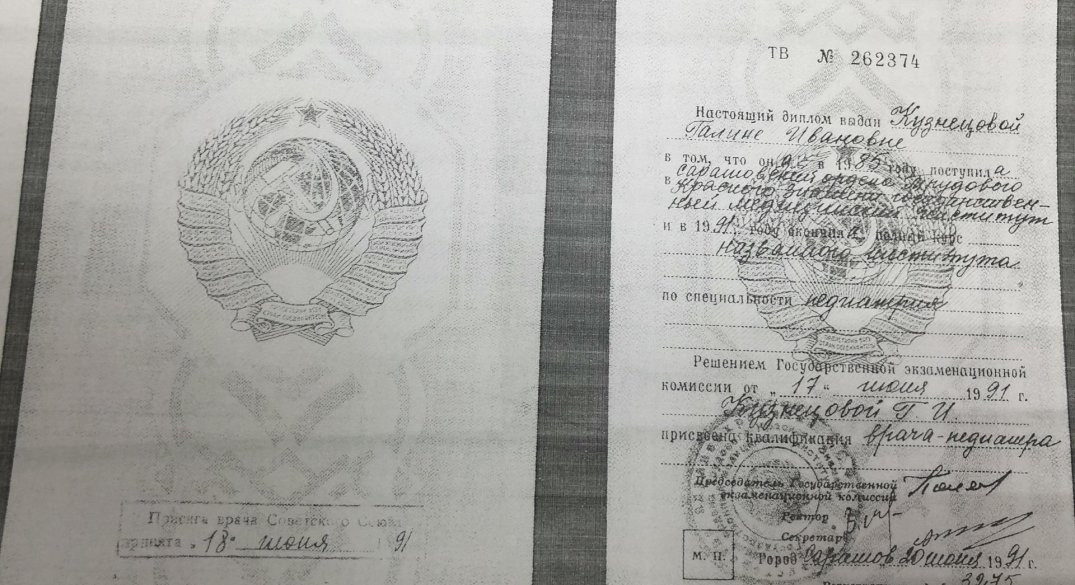 Присяга врача Советского Союза
принята „18“ июня 1991
ТВ № 262374
Настоящий диплом выдан Кузнецовой
Галине Ивановне
в том, что она в 1985 году поступила
в Саратовский ордена Трудового
Красного Знамени государствен-
ный медицинский институт
и в 1991 году окончила полный курс
названного института
по специальности педиатрия
Решением Государственной экзаменационной
комиссии от „17“ июня 1991 г.
Кузнецовой Г. И.
присвоена квалификация врача-педиатра
Председатель Государственной
экзаменационной комиссии
Ректор
Секретарь
М. П. Город Саратов 20 июня 1991 г.